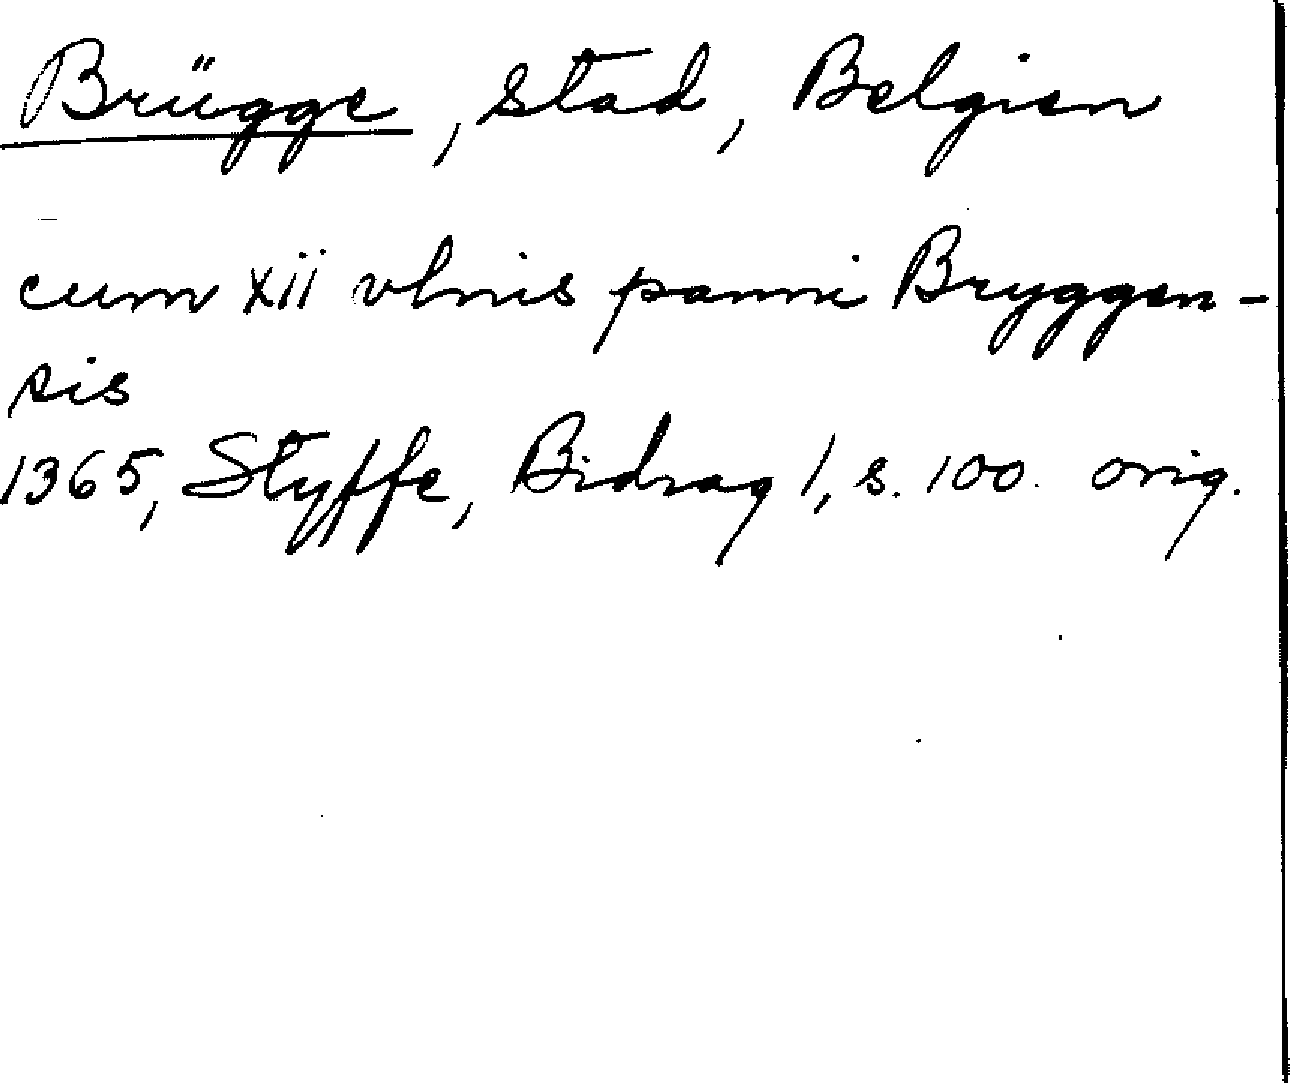 Brügge, stad, Belgien
cum xii vlnis panni Bryggen-
sis
1365, Styffe, Bidrag 1, s. 100. orig.